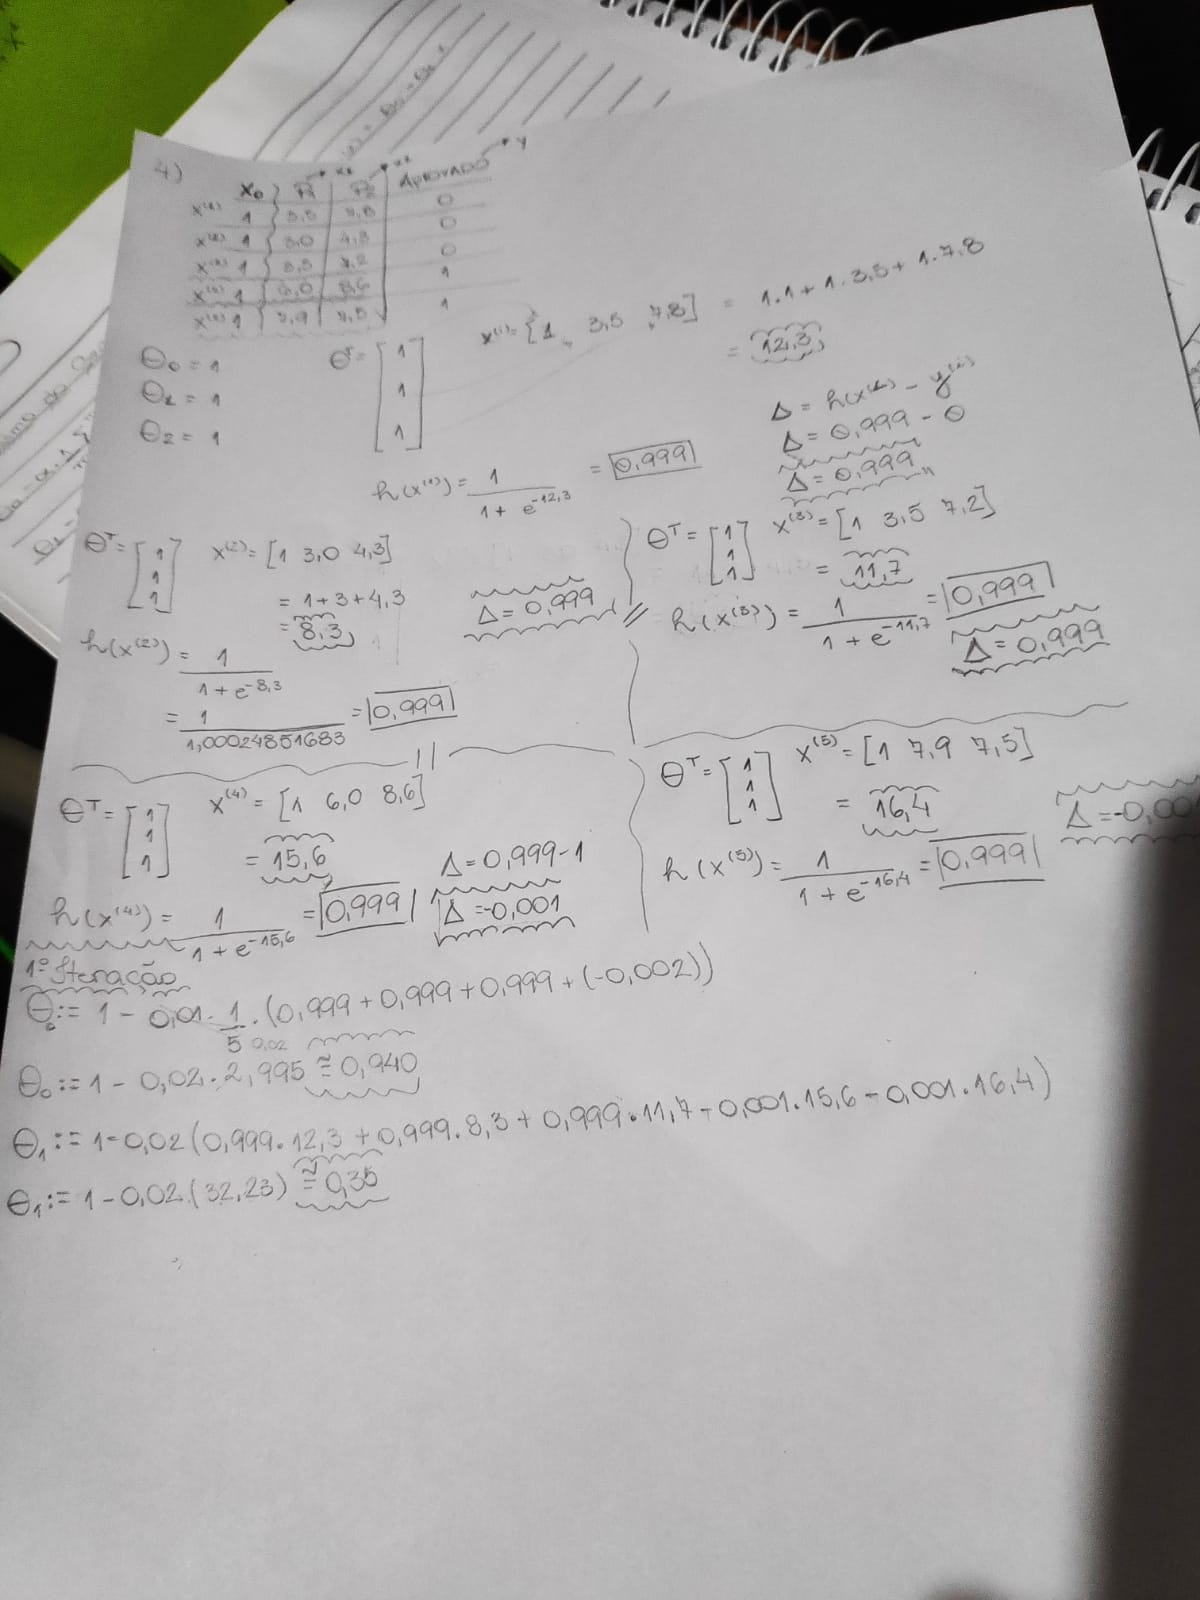 4)
X₀ P1 → X₁ P2 → X₂ APROVADO → Y
X⁽¹⁾ 1 3,5 7,8 0
X⁽²⁾ 1 3,0 4,3 0
X⁽³⁾ 1 3,5 7,2 0
X⁽⁴⁾ 1 6,0 8,6 1
X⁽⁵⁾ 1 7,9 7,5 1
θ₀ = 1
θ₁ = 1
θ₂ = 1
θᵀ= [1 1 1]
X⁽¹⁾= [1 3,5 7,8] = 1.1 + 1.3,5 + 1.7,8
= 12,3
h(x⁽¹⁾) = 1 / 1 + e^-12,3 = 0,999
Δ = h(x⁽¹⁾) - y⁽¹⁾
Δ = 0,999 - 0
Δ = 0,999
θᵀ= [1 1 1] X⁽²⁾= [1 3,0 4,3]
= 1+3+4,3
= 8,3
Δ= 0,999
h(x⁽²⁾) = 1 / 1 + e^-8,3
= 1 / 1,00024851683 = 0,999
θᵀ= [1 1 1] X⁽³⁾= [1 3,5 7,2]
= 11,7
h(x⁽³⁾) = 1 / 1 + e^-11,7 = 0,999
Δ = 0,999
θᵀ= [1 1 1] X⁽⁴⁾ = [1 6,0 8,6]
= 15,6
Δ= 0,999-1
h(x⁽⁴⁾) = 1 / 1 + e^-15,6 = 0,999
Δ =-0,001
θᵀ= [1 1 1] X⁽⁵⁾ = [1 7,9 7,5]
= 16,4
Δ =-0,001
h(x⁽⁵⁾) = 1 / 1 + e^-16,4 = 0,999
1ª Iteração
θ₀ := 1 - 0,01 . 1/5 . (0,999 + 0,999 + 0,999 + (-0,002))
0,02
θ₀ := 1 - 0,02 . 2,995 ≅ 0,940
θ₁ := 1-0,02 (0,999. 12,3 + 0,999. 8,3 + 0,999.11,7 - 0,001.15,6 - 0,001.16,4)
θ₁ := 1 - 0,02.(32,23) ≅ 0,35